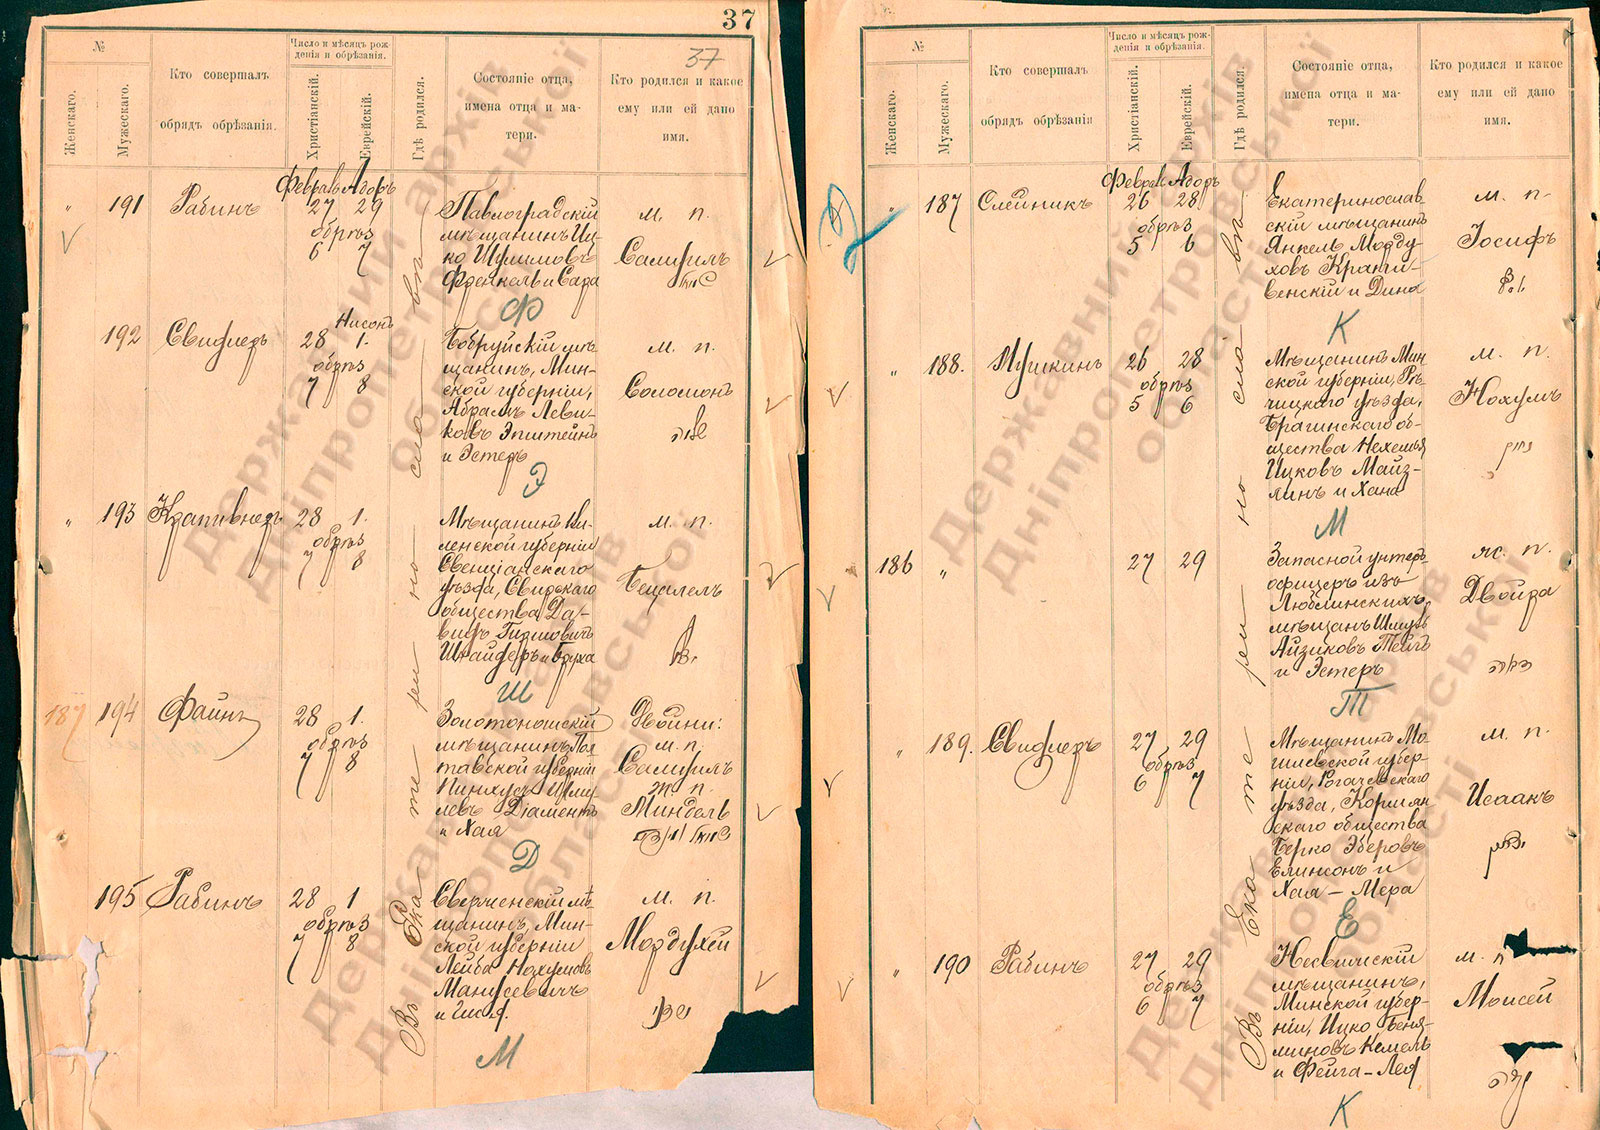 37
37
№
Женскаго.
Мужескаго.
Кто совершалъ
обрядъ обрѣзанія.
Число и мѣсяцъ рож-
денія и обрѣзанія.
Христіанскій.
Еврейскій.
Гдѣ родился.
Состояніе отца,
имена отца и ма-
тери.
Кто родился и какое
ему или ей дано
имя.
Въ Екате ри но сла вѣ
" 191 Рабинъ
Феврал Адоръ
27 29
обрѣз
6 7
Павлоградскій
мѣщанинъ Иц-
ко Шулимовъ
Френкель и Сара
Ф
м. п.
Самуилъ
192
Нисонъ
28 1.
обрѣз
7 8
Бобруйскій мѣ-
щанинъ, Мин-
ской губерніи,
Абрамъ Леви-
ковъ Эпштейнъ
и Эстеръ
Э
м. п.
Соломонъ
" 193 Крапивнеръ
28 1.
обрѣз
7 8
Мѣщанинъ Ви-
ленской губерніи
Свенціанскаго
уѣзда, Свирскаго
общества Да-
видъ Гиршовичъ
Штайферъ и Бруха
Ш
м. п.
Бецалелъ
187 194 Файнъ
28 1.
обрѣз
7 8
Золотоношскій
мѣщанинъ, Пол
тавской губерніи
Пинхусъ Шму
левъ Діаментъ
и Хая
Д
Двойни:
м. п.
Самуилъ
ж п.
Миндель
195 Рабинъ
28 1
обрѣз
7 8
Сверженскій мѣ-
щанинъ, Мин-
ской губерніи
Лейба Нохумовъ
Манусевичъ
и Гися.
М
м. п.
Мордухей
№
Женскаго.
Мужескаго.
Кто совершалъ
обрядъ обрѣзанія
Число и мѣсяцъ рож-
денія и обрѣзанія.
Христіанскій.
Еврейскій.
Гдѣ родился.
Состояніе отца,
имена отца и ма-
тери.
Кто родился и какое
ему или ей дано
имя.
Въ Екате ри но сла вѣ
" 187 Слейникъ
Феврал Адоръ
26 28
обрѣз
5 6
Екатеринослав
скій мѣщанинъ
Янкель Морду
ховъ
и Дина
К
м. п.
Іосифъ
" 188. Пушкинъ
26 28
обрѣз
5 6
Мѣщанинъ Мин
ской губерніи, Рѣ-
чицкаго уѣзда,
Брагинскаго об-
щества
Ицковъ Майз-
линъ и Хана
М
м. п.
Нохумъ
186 "
27 29
Запасной унтеръ
офицеръ изъ
Люблинскихъ
мѣщанъ
Айзиковъ
и Эстеръ
Т
ж. п.
Двойра
" 189.
27 29
обрѣз
6 7
Мѣщанинъ Мо-
гилевской губер-
ніи, Рогачевскаго
уѣзда, Кормян
скаго общества
Берко Эберовъ
Елинсонъ и
Хая-Мера
Е
м. п.
Исаакъ
" 190 Рабинъ
27 29
обрѣз
6 7
Несвижскій
мѣщанинъ,
Минской губер-
ніи, Ицко Беня-
миновъ Кемель
и Фейга-Лея
К
м. п
Моисей
Державний архів
Дніпропетровської
області